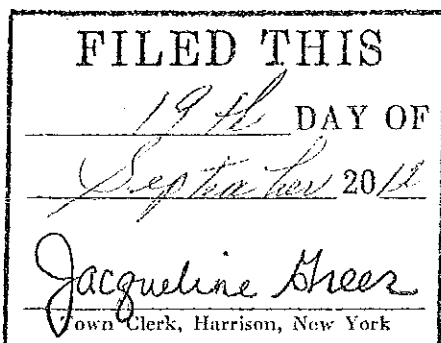 FILED THIS
19th DAY OF
September 2012
Jacqueline Greer
Town Clerk, Harrison, New York